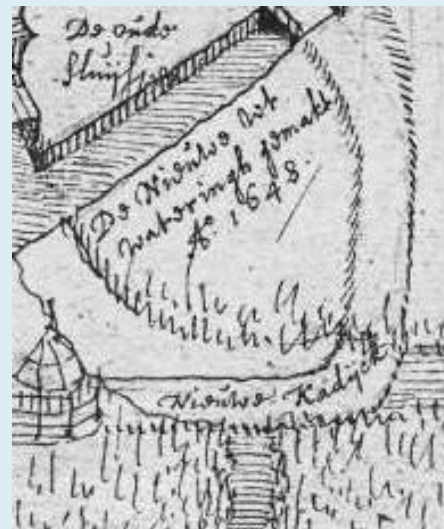 De oude
sluijs
De Nieuwe wt
wateringh gemakt
Aº. 1648.
Nieuwe Kadijck